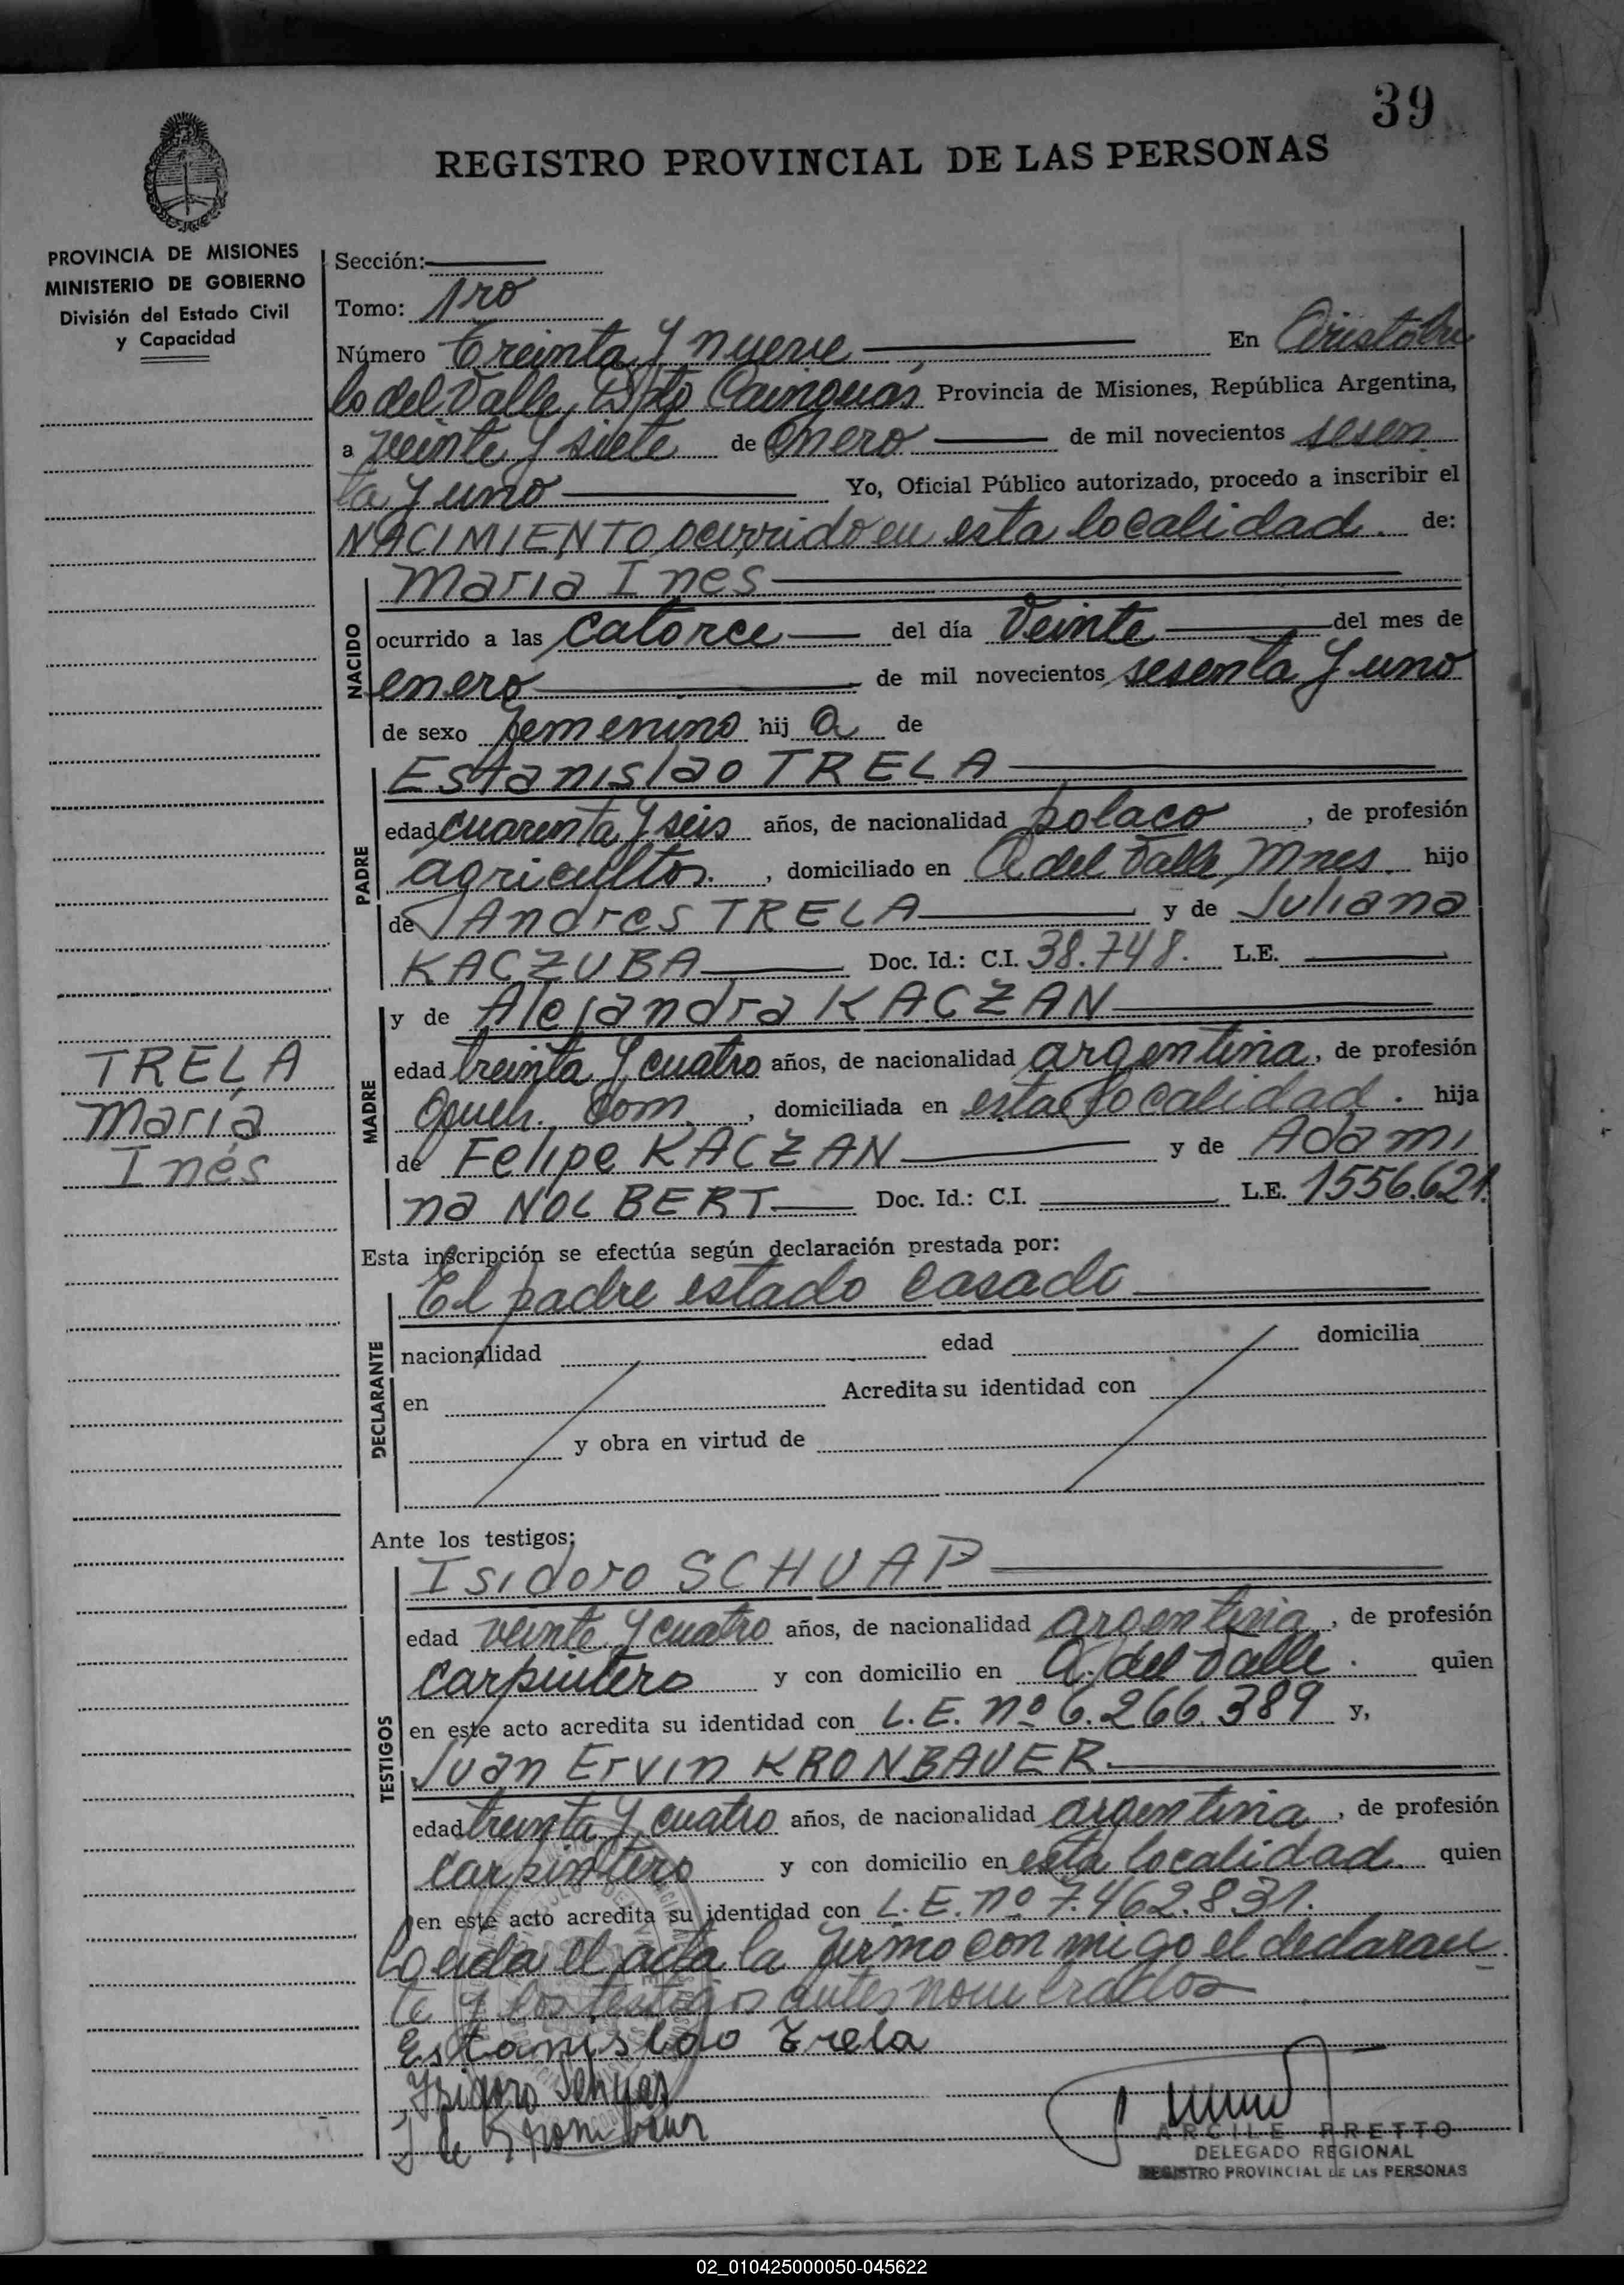 39
REGISTRO PROVINCIAL DE LAS PERSONAS
PROVINCIA DE MISIONES
MINISTERIO DE GOBIERNO
División del Estado Civil
y Capacidad
Sección:
Tomo: 1ro
Número Treinta y nueve En Aristóbu
lo del Valle, Dpto Cainguas Provincia de Misiones, República Argentina,
a veinte y siete de Enero de mil novecientos sesen
ta y uno Yo, Oficial Público autorizado, procedo a inscribir el
NACIMIENTO ocurrido en esta localidad. de:
NACIDO
Maria Ines
ocurrido a las catorce del día Veinte del mes de
enero de mil novecientos sesenta y uno
de sexo femenino hij a de
PADRE
Estanislao TRELA
edad cuarenta y seis años, de nacionalidad polaco, de profesión
agricultor., domiciliado en A del Valle, Mnes. hijo
de Andres TRELA y de Juliana
KACZUBA Doc. Id.: C.I. 38.748. L.E.
MADRE
y de Alejandra KACZAN
edad treinta y cuatro años, de nacionalidad argentina, de profesión
Queh. Dom., domiciliada en esta localidad. hija
de Felipe KACZAN y de Adami
na NOLBERT Doc. Id.: C.I. L.E. 1556.621.
TRELA
María
Inés
Esta inscripción se efectúa según declaración prestada por:
DECLARANTE
El padre estado casado
nacionalidad edad domicilia
en Acredita su identidad con
y obra en virtud de
Ante los testigos:
TESTIGOS
Isidoro SCHUAP
edad veinte y cuatro años, de nacionalidad argentina, de profesión
carpintero y con domicilio en A. del Valle. quien
en este acto acredita su identidad con L.E. nº 6.266.389 y,
Juan Ervin KRONBAUER.
edad treinta y cuatro años, de nacionalidad argentina, de profesión
carpintero y con domicilio en esta localidad. quien
en este acto acredita su identidad con L.E. nº 7.462.831.
Leida el acta la firmo con migo el declaran
te y los testigos antes nombrados
Estanislao Trela
Isidoro
ARCILE PRETTO
DELEGADO REGIONAL
REGISTRO PROVINCIAL DE LAS PERSONAS
02_010425000050-045622